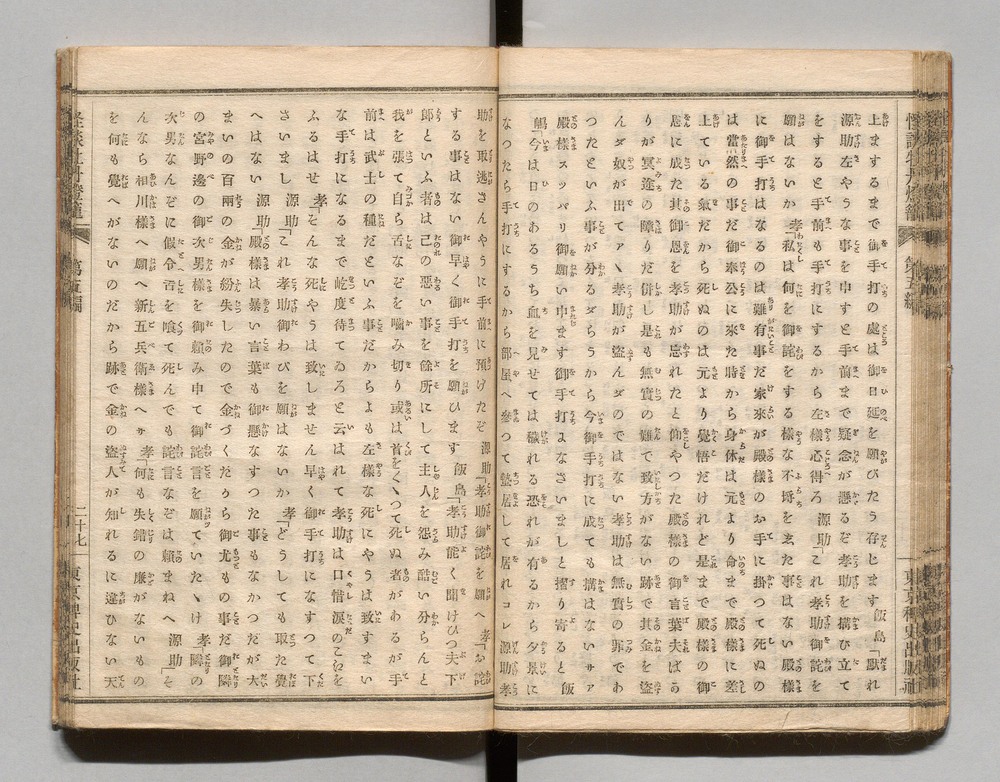 上まするまで御手打の處は御日延を願びたう存じます 飯島「默れ
源助左やうな事を申すと手前まで疑念が懸るぞ孝助を搆ひ立て
をすると手前も手打にするから左樣心得ろ 源助「これ孝助御詫を
願はないか 孝「私は何を御詫をする樣な不埓をた事はない殿樣
に御手打はなるのは難有事だ家來が殿樣のお手に掛つて死ぬの
は當然の事だ御奉公に來た時から身体は元より命まで殿樣に差
上ている氣だから死ぬのは元より覺悟だけれど是まで殿樣の御
恩に成た其御恩を孝助が忘れたと仰やつた殿樣の御言葉夫ばか
りが冥途の障りだ併し是も無實の難で致方がない跡で其金を盜
んダ奴が出てアヽ孝助が盜んダのではない孝助は無實の罪であ
つたといふ事が分るダらうから今御手打に成ても搆はないサァ
殿樣スッパリ御願い申ます御手打よなさいましと摺り寄ると 飯
島「今は日のあるうち血を見せては穢れる恐れが有るから夕景に
なつたら手打にするから部屋へ參つて蟄居して居れコレ源助孝
助を取逃さんやうに手前に預けたぞ 源助「孝助御詫を願へ 孝「お詫
する事はない御早く御手打を願ひます 飯島「孝助能く聞けひつ夫下
郎といふ者は己の惡い事を餘所にして主人を怨み酷い分らんと
我を張て自ら舌なぞを噛み切り或は首をくヽつて死ぬ者があるが手
前は武士の種だといふ事だからよも左樣な死にやうは致すまい
な手打になるまで屹度待てゐろと云はれて孝助は口惜涙のこゑを
ふるはせ 孝「そんな死やうは致しません早く御手打になすつて下
さいまし 源助「これ孝助御わびを願はないか 孝「どうしても取た覺
へはない 源助「殿樣は暴い言葉も御懸なすつた事もなかつだが大
まいの百兩の金が紛失したので金づくだから御尤もの事だ御隣
の宮野邊の御次男樣を御頼み申て御詫言を願ていたヽけ 孝「隣の
次男なんぞに假令舌を喰て死んでも詫言なぞは頼まねへ 源助「そ
んなら相川樣へ願へ新五兵衛樣へサ 孝「何も失錯の廉がないもの
を何も覺へがないのだから跡で金の盜人が知れるに違ひない天
第五編
二十七
東京稗史出版社